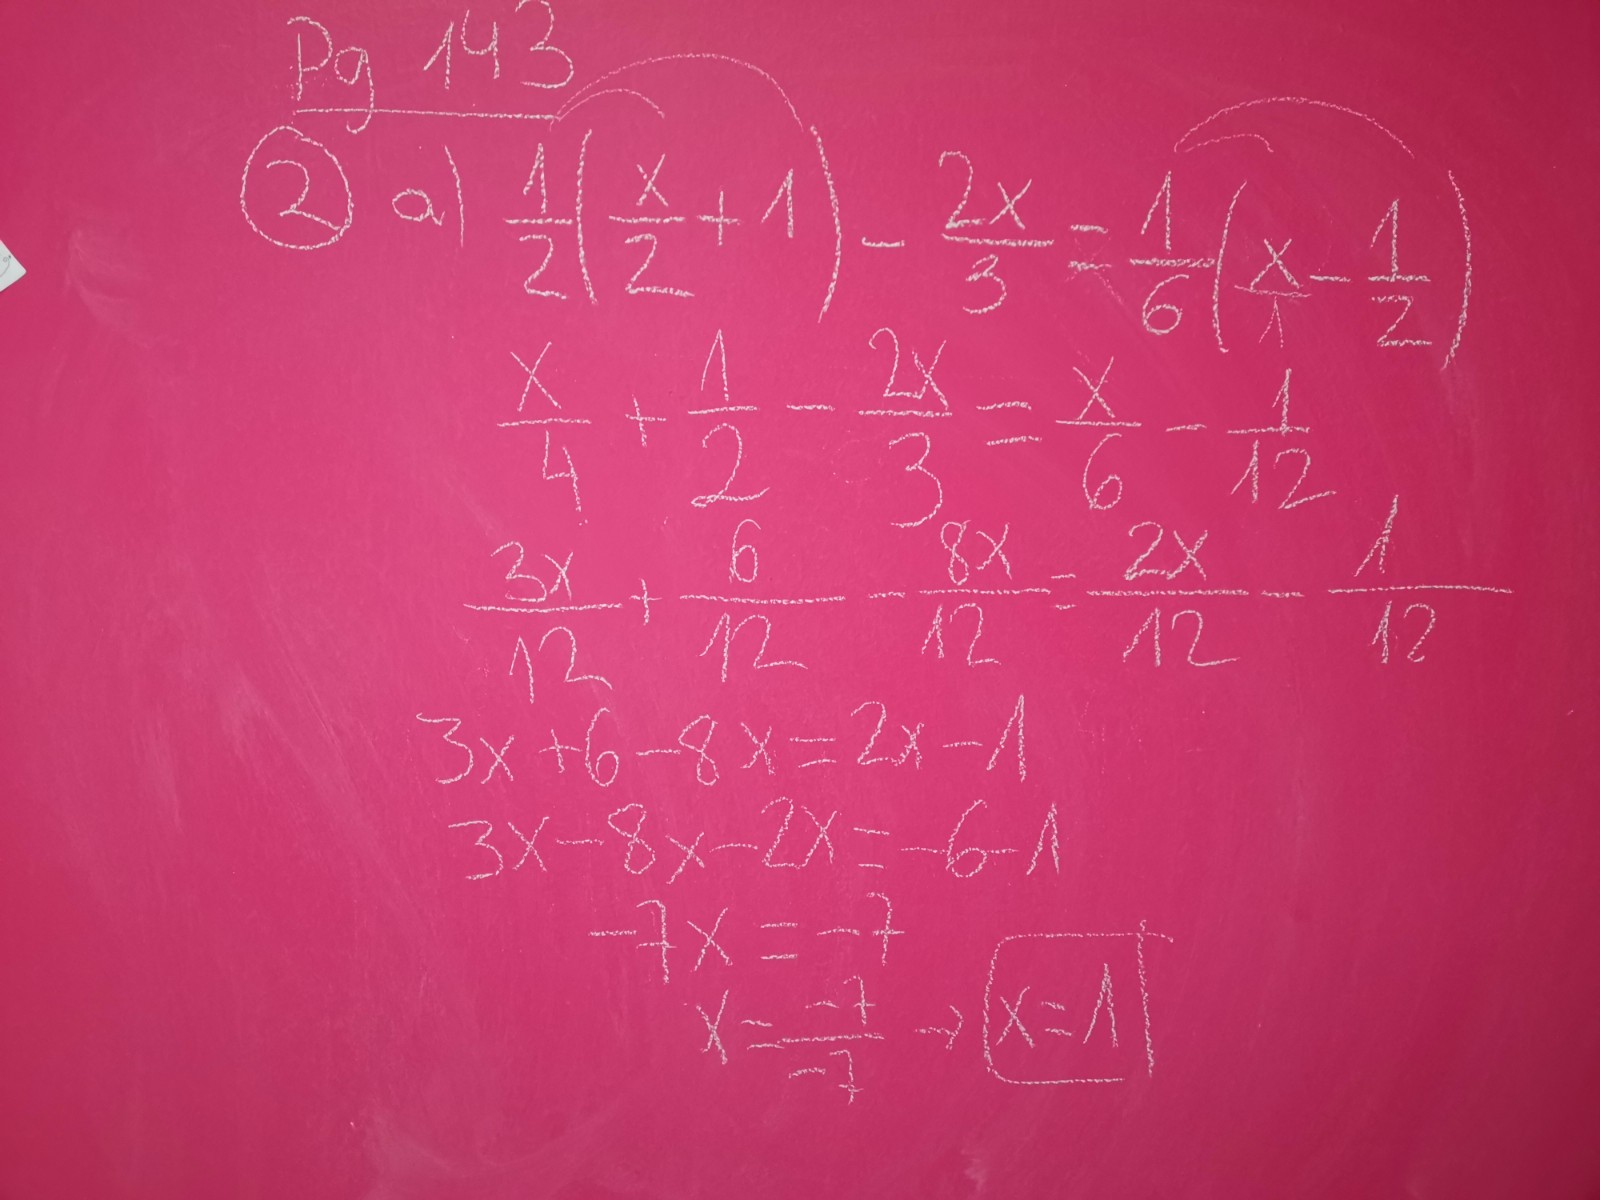 Pg 143
② a) 1/2 (x/2 + 1) - 2x/3 = 1/6 (x/1 - 1/2)
x/4 + 1/2 - 2x/3 = x/6 - 1/12
3x/12 + 6/12 - 8x/12 = 2x/12 - 1/12
3x + 6 - 8x = 2x - 1
3x - 8x - 2x = -6 - 1
-7x = -7
x = -7/-7 → x = 1